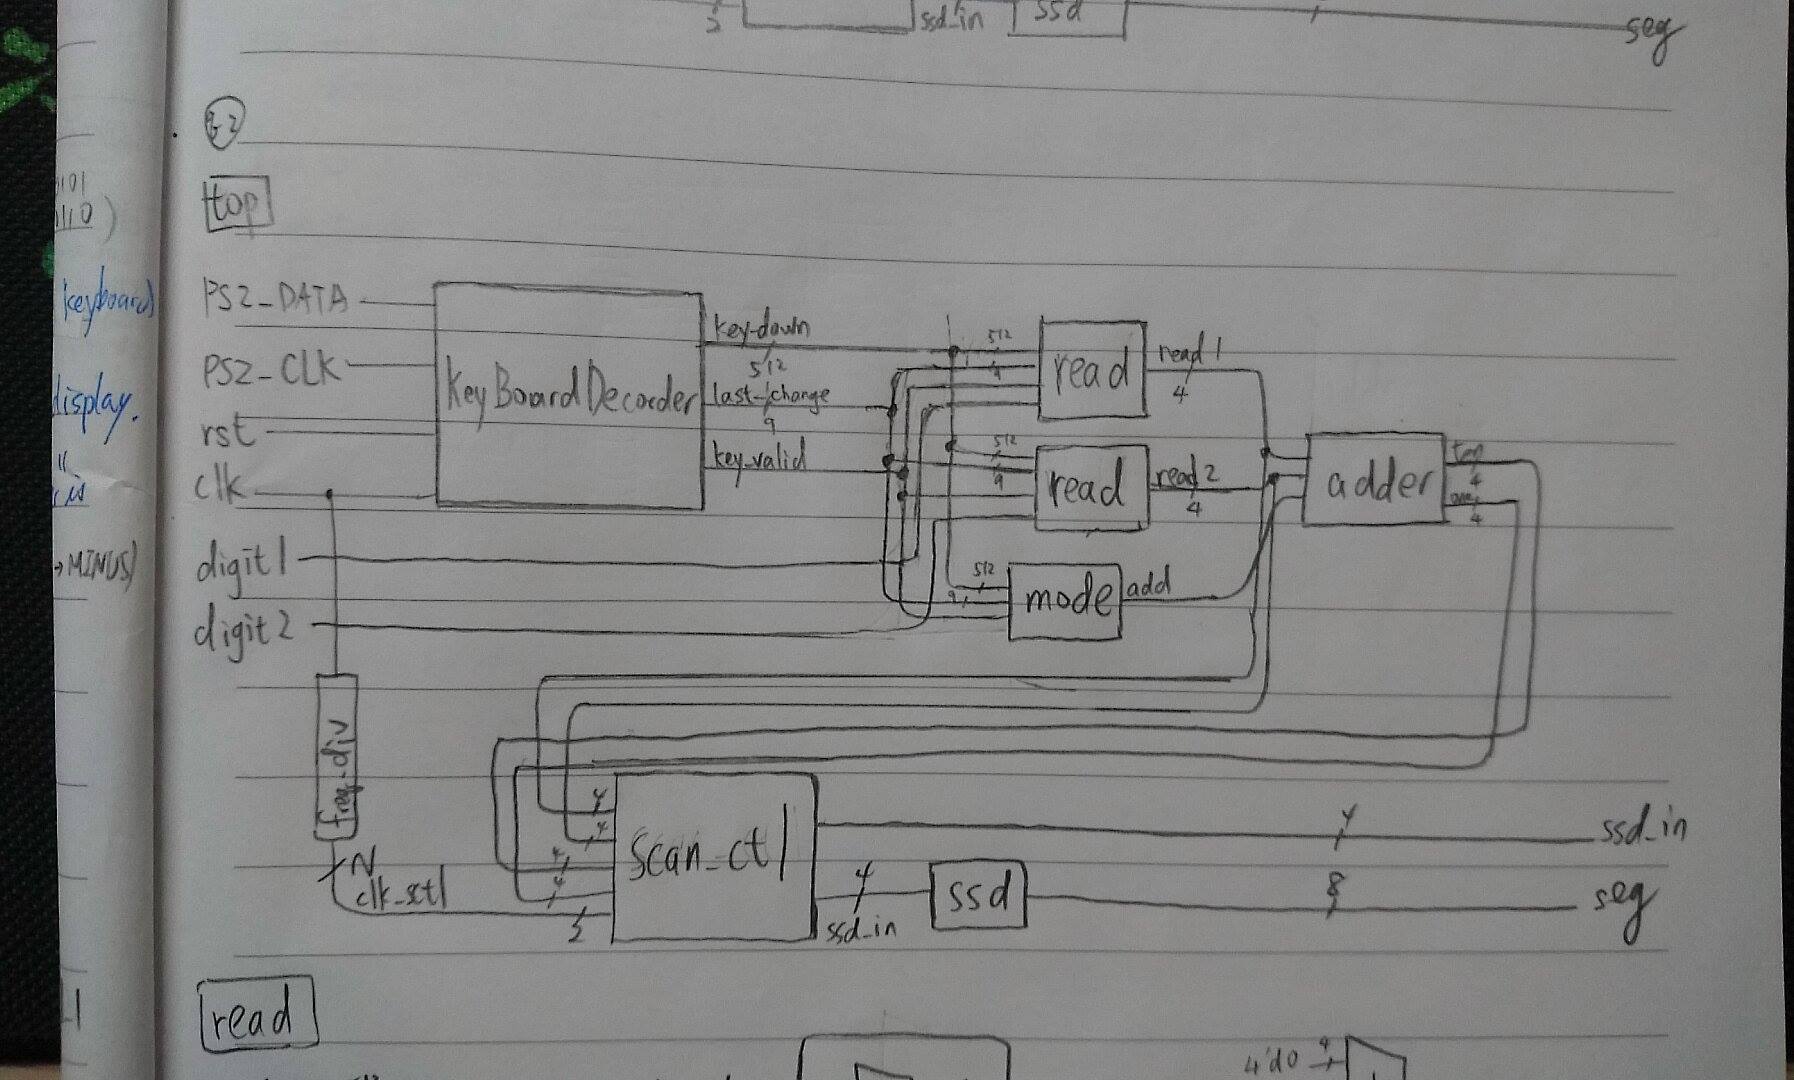 ssd_in
ssd
seg
top
PS2_DATA
PS2_CLK
rst
clk
digit1
digit2
KeyBoardDecorder
key_down
512
last_change
9
key_valid
512
9
read
read1
4
512
9
read
read2
4
512
9
mode
add
adder
ten
4
one
4
freq_div
N
clk_sctl
4
4
4
4
2
scan_ctl
4
ssd_in
4
ssd_in
ssd
8
seg
read
4'd0
4
0101
0110)
keyboard)
display.
is
→MINUS)